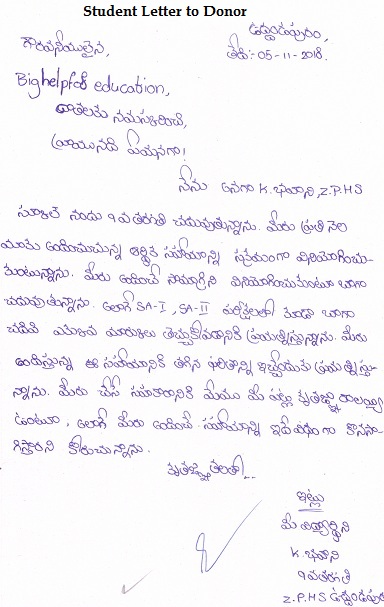 Student Letter to Donor
ఉద్దండపురం,
తేది:-05-11-2018.
గౌరవనీయులైన,
Bighelpfor education,
దాతలకు నమస్కరించి,
వ్రాయునది ఏమనగా!
నేను అనగా K.భవాని, Z.P.HS
స్కూల్ నందు 9వ తరగతి చదువుతున్నాను. మీరు ప్రతి నెల
మాకు అందించుచున్న ఆర్థిక సహాయాన్ని సక్రమంగా వినియోగించు
కుంటున్నాను. మీరు అందించే సామాగ్రిని వినియోగించుకుంటూ బాగా
చదువుతున్నాను. అలాగే SA-I, SA-II పరీక్షలలో కూడా బాగా
చదివి ఎక్కువ మార్కులు తెచ్చుకోవడానికి ప్రయత్నిస్తున్నాను. మీరు
అందిస్తున్న ఈ సహాయానికి తగిన ఫలితాన్ని ఇచ్చేందుకు ప్రయత్నిస్తు-
న్నాను. మీరు చేసే సహకారానికి మేము మీ పట్ల కృతజ్ఞు రాలమై
ఉంటూ, అలాగే మీరు అందించే సహాయాన్ని ఇదేవిధంగా కొనసా-
గిస్తారని కోరుచున్నాను.
కృతజ్ఞతలతో...
ఇట్లు
మీ విద్యార్థిని
K.భవాని
9వ తరగతి
Z.P.HS ఉద్దండపురం